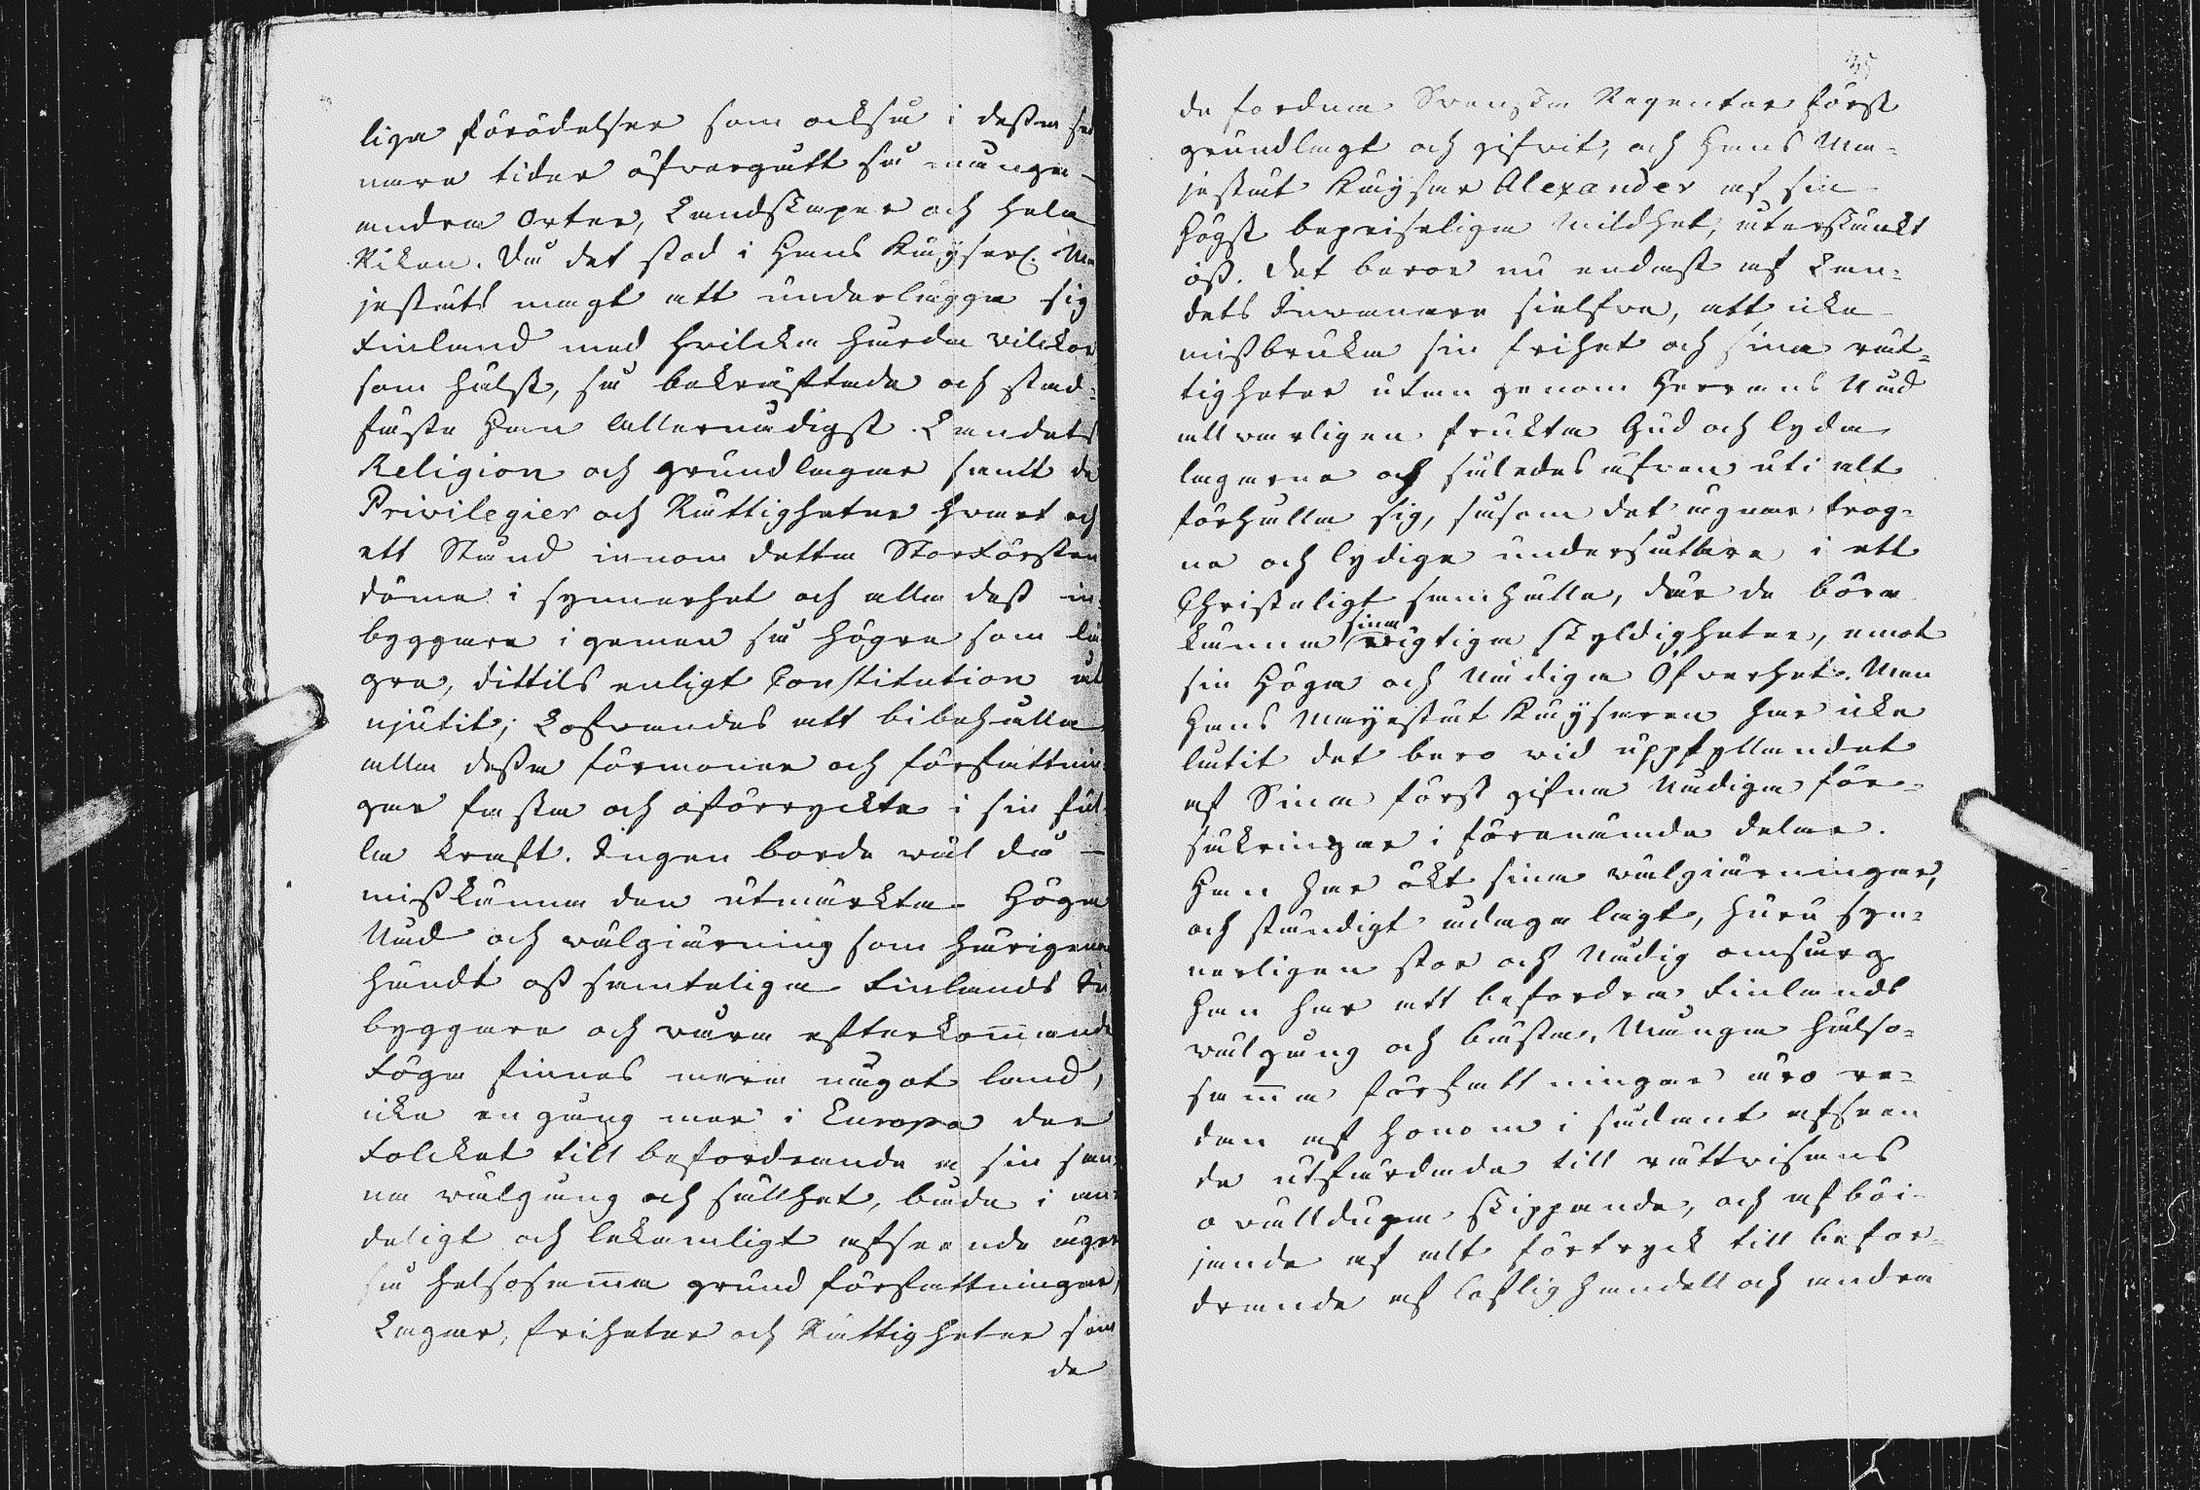 liga förödelser som också i dessa sed
nare tider öfvergått så många
andra Orter, Landskaper och hela
Riken. Då det stod i Hans Kaÿserl. Ma
jestäts magt att underlägga sig
Finland med hvilcka hårda vilckor
som hälst, så bekräftade och stad-
fäste Han Allernådigst Landets
Religion och grundlagar samt de
Privilegier och Rättigheter hvart och
ett Stånd innom detta Storförsten
döme i synnerhet och alla dess in-
byggare i gemen så högre som lä
gre, dittils enligt Constitution åt
njutit; Lofvandes att bibehålla
alla dessa förmoner och författnin
gar fasta och oförryckta i sin ful
la kraft. Ingen borde wäl då –
misskänna den utmärkta Höga
Nåd och wälgiärning som härigenom
händt oss samteliga Finlands In
byggare och våra efterkommande
Föga finnes mera något land,
icke en gång mer i Europa der
Folcket till befordrande a sin san-
na wälgång och sällhet, både i an-
deligt och lekamligt afseende äger
så helsosamma grund författningar,
Lagar, friheter och Rättigheter som
de
35
de fordna Svenska Regenter först
grundlagt och gifvit, och Hans Ma-
jestät Kaÿsar Alexander af sin
högst beprisliga Mildhet, återskänckt
oss. Det beror nu endast af Lan-
dets Inwånare sielfva, att icke
missbruka sin frihet och sina rät-
tigheter utan genom Herrans Nåd
allvarligen frukta Gud och lyda
lagarna och således äfven uti alt
förhålla sig, såsom det ägnar trog-
na och lydiga undersåttare i ett
Christeligt samhälle, där de böra
känna sina rigtiga skyldigheter, emot
sin Höga och Nådiga Öfverhet. Men
Hans Mayestät Kaÿsaren har icke
låtit det bero wid uppfyllandet
af Sina först gifna Nådiga för-
säkringar i förenämde delar.
Han har ökt sina wälgiärningar,
och ständigt ådaga lagt, huru syn-
nerligen stor och Nådig omsårg
han har att befordra Finlands
wälgång och bästa. Många hälso-
samma författningar äro re-
dan af honom i sådant afseen
de utfärdade till rättvisans
owälduga skippande, och afböi-
jande af alt förtryck till befor-
drande af laflig handell och andra